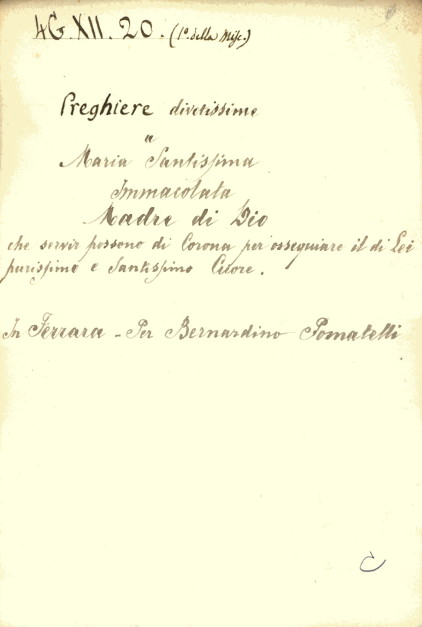 4G.XII.20. (1º della Misc.)
Preghiere divotissime
a
Maria Santissima
Immacolata
Madre di Dio
che servir possono di Corona per ossequiare il di Lei
purissimo e Santissimo Cuore.
In Ferrara - Per Bernardino Pomatelli
C